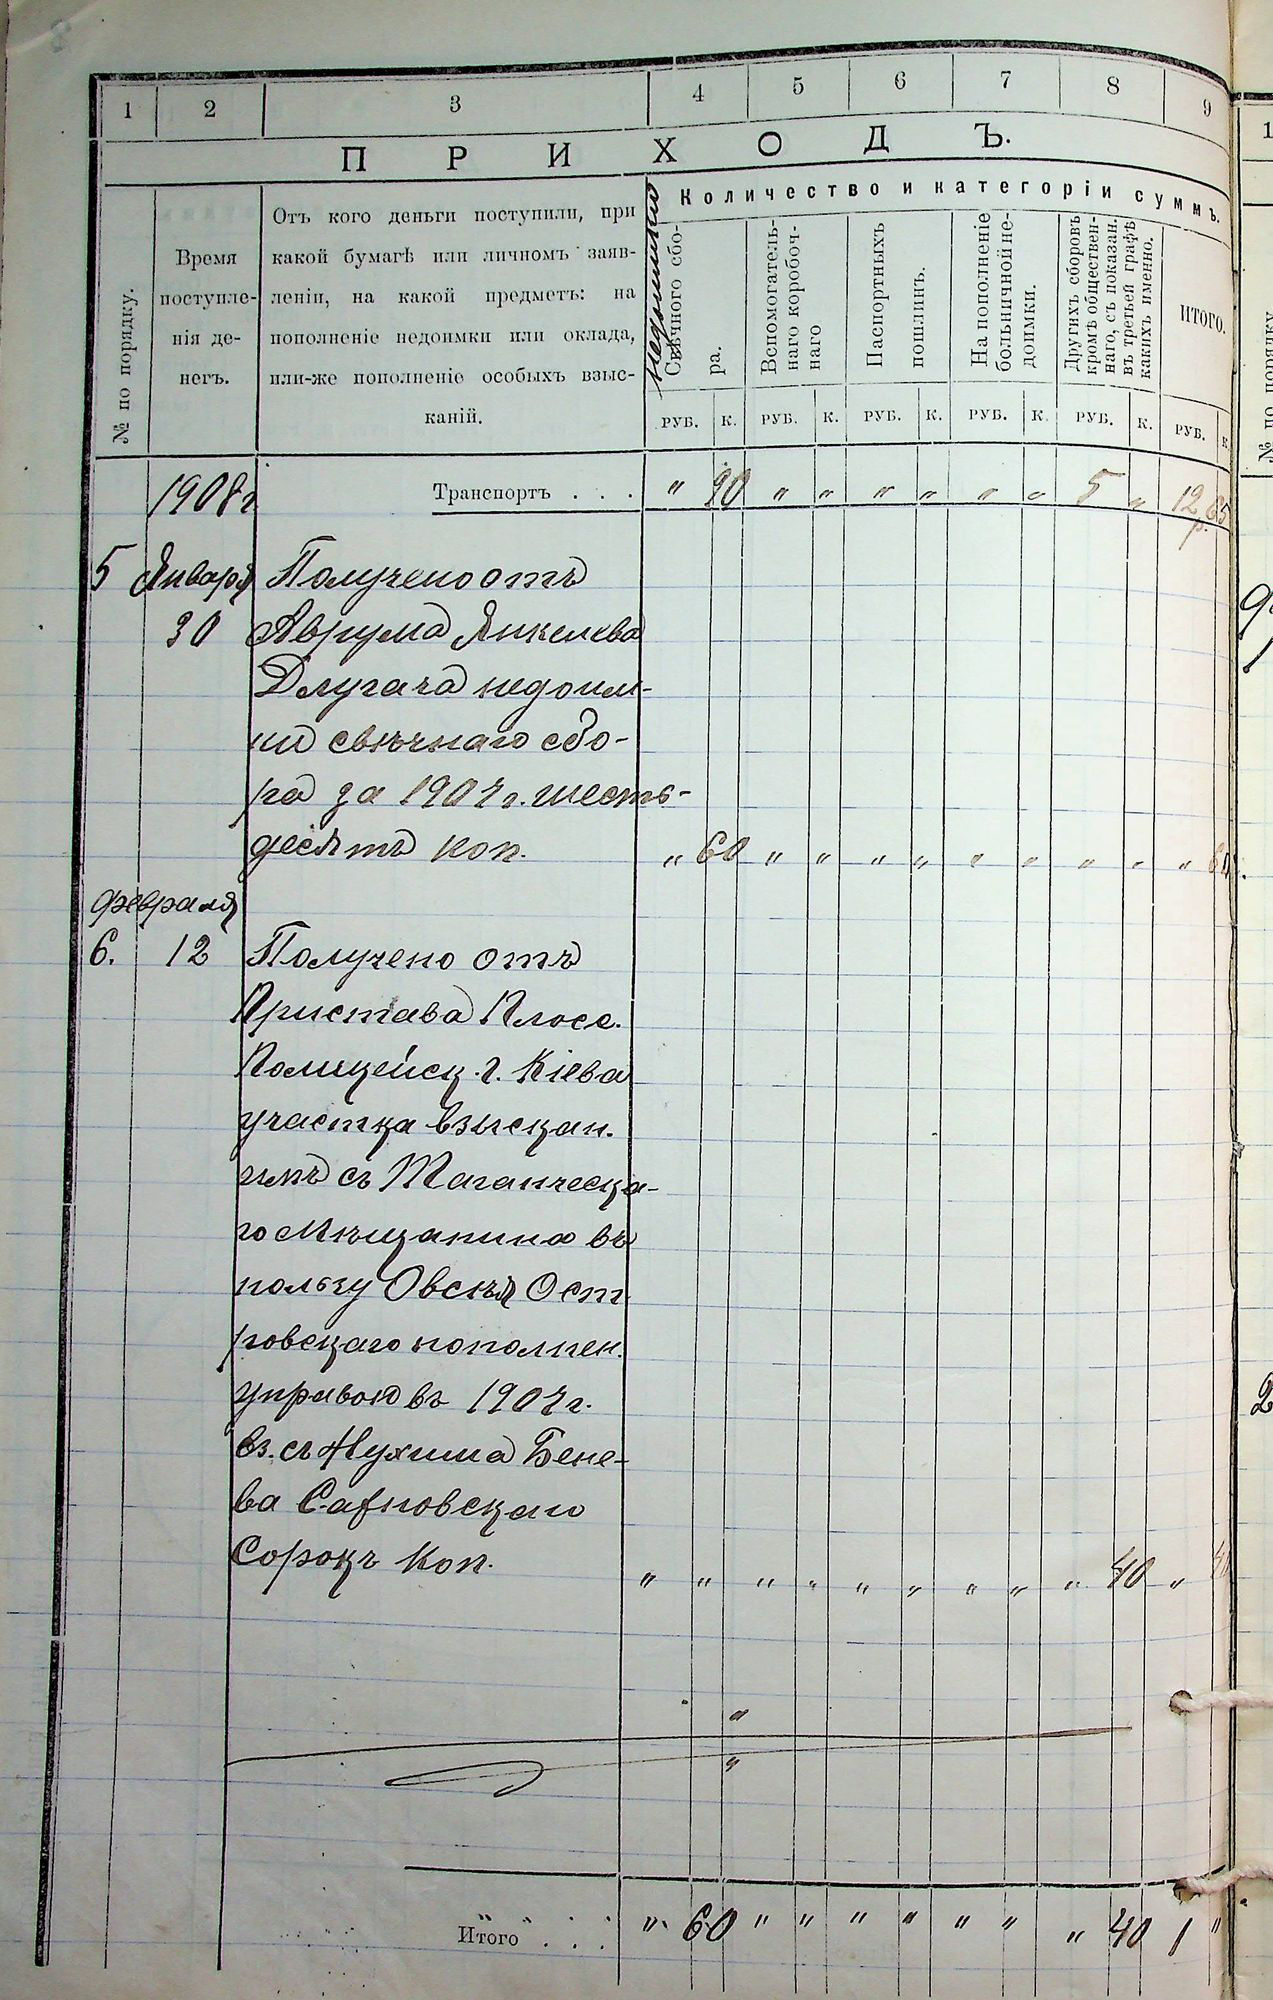 1 2 3 4 5 6 7 8 9
ПРИХОДЪ.
№ по порядку.
Время
поступле-
нія де-
негъ.
Отъ кого деньги поступили, при
какой бумагѣ или личномъ заяв-
леніи, на какой предметъ: на
пополненіе недоимки или оклада,
или-же пополненіе особыхъ взыс-
каній.
Количество и категоріи суммъ.
Свѣчного сбо-
ра.
Вспомогатель-
наго коробоч-
наго
Паспортныхъ
пошлинъ.
На пополненіе
больничной не-
доимки.
Другихъ сборовъ
кромѣ обществен-
наго, съ показан.
въ третьей графѣ
какихъ именно.
ИТОГО.
РУБ. К. РУБ. К. РУБ. К. РУБ. К. РУБ. К. РУБ. К
1908 г Транспортъ . . . " 90 " " " " " " 5 " 12 р. 65
5 Января Получено отъ
30 Аврума Янкелева
Длугача недоим-
ки свѣчнаго сбо-
ра за 1907 г. шесть-
десятъ коп. " 60 " " " " " " " " " 60
Февраля
6. 12 Получено отъ
Пристава Плосс.
Полицейск. г. Кіева
участка взыскан.
имъ съ Таганческа-
го Мѣщанина въ
пользу Овсѣя Ост
ровскаго пополнен.
управою въ 1907 г.
вз. съ Нухима Бене-
ва
Сорокъ Коп. " " " " " " " " " 40 " 40
Итого . . . " 60 " " " " " " " 40 1 "